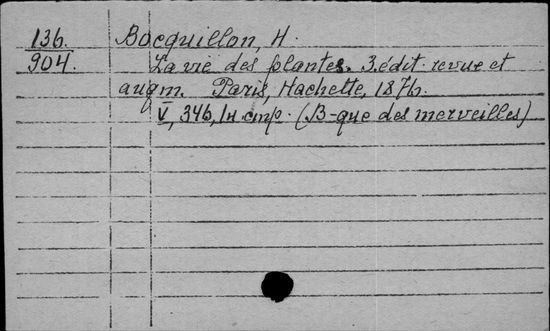 136. Bocquillon, H.
904. La vie des plantes. 3.édit. revue et
augm. Paris, Hachette, 1876.
V, 346, 1н стр. (B-que des merveilles)